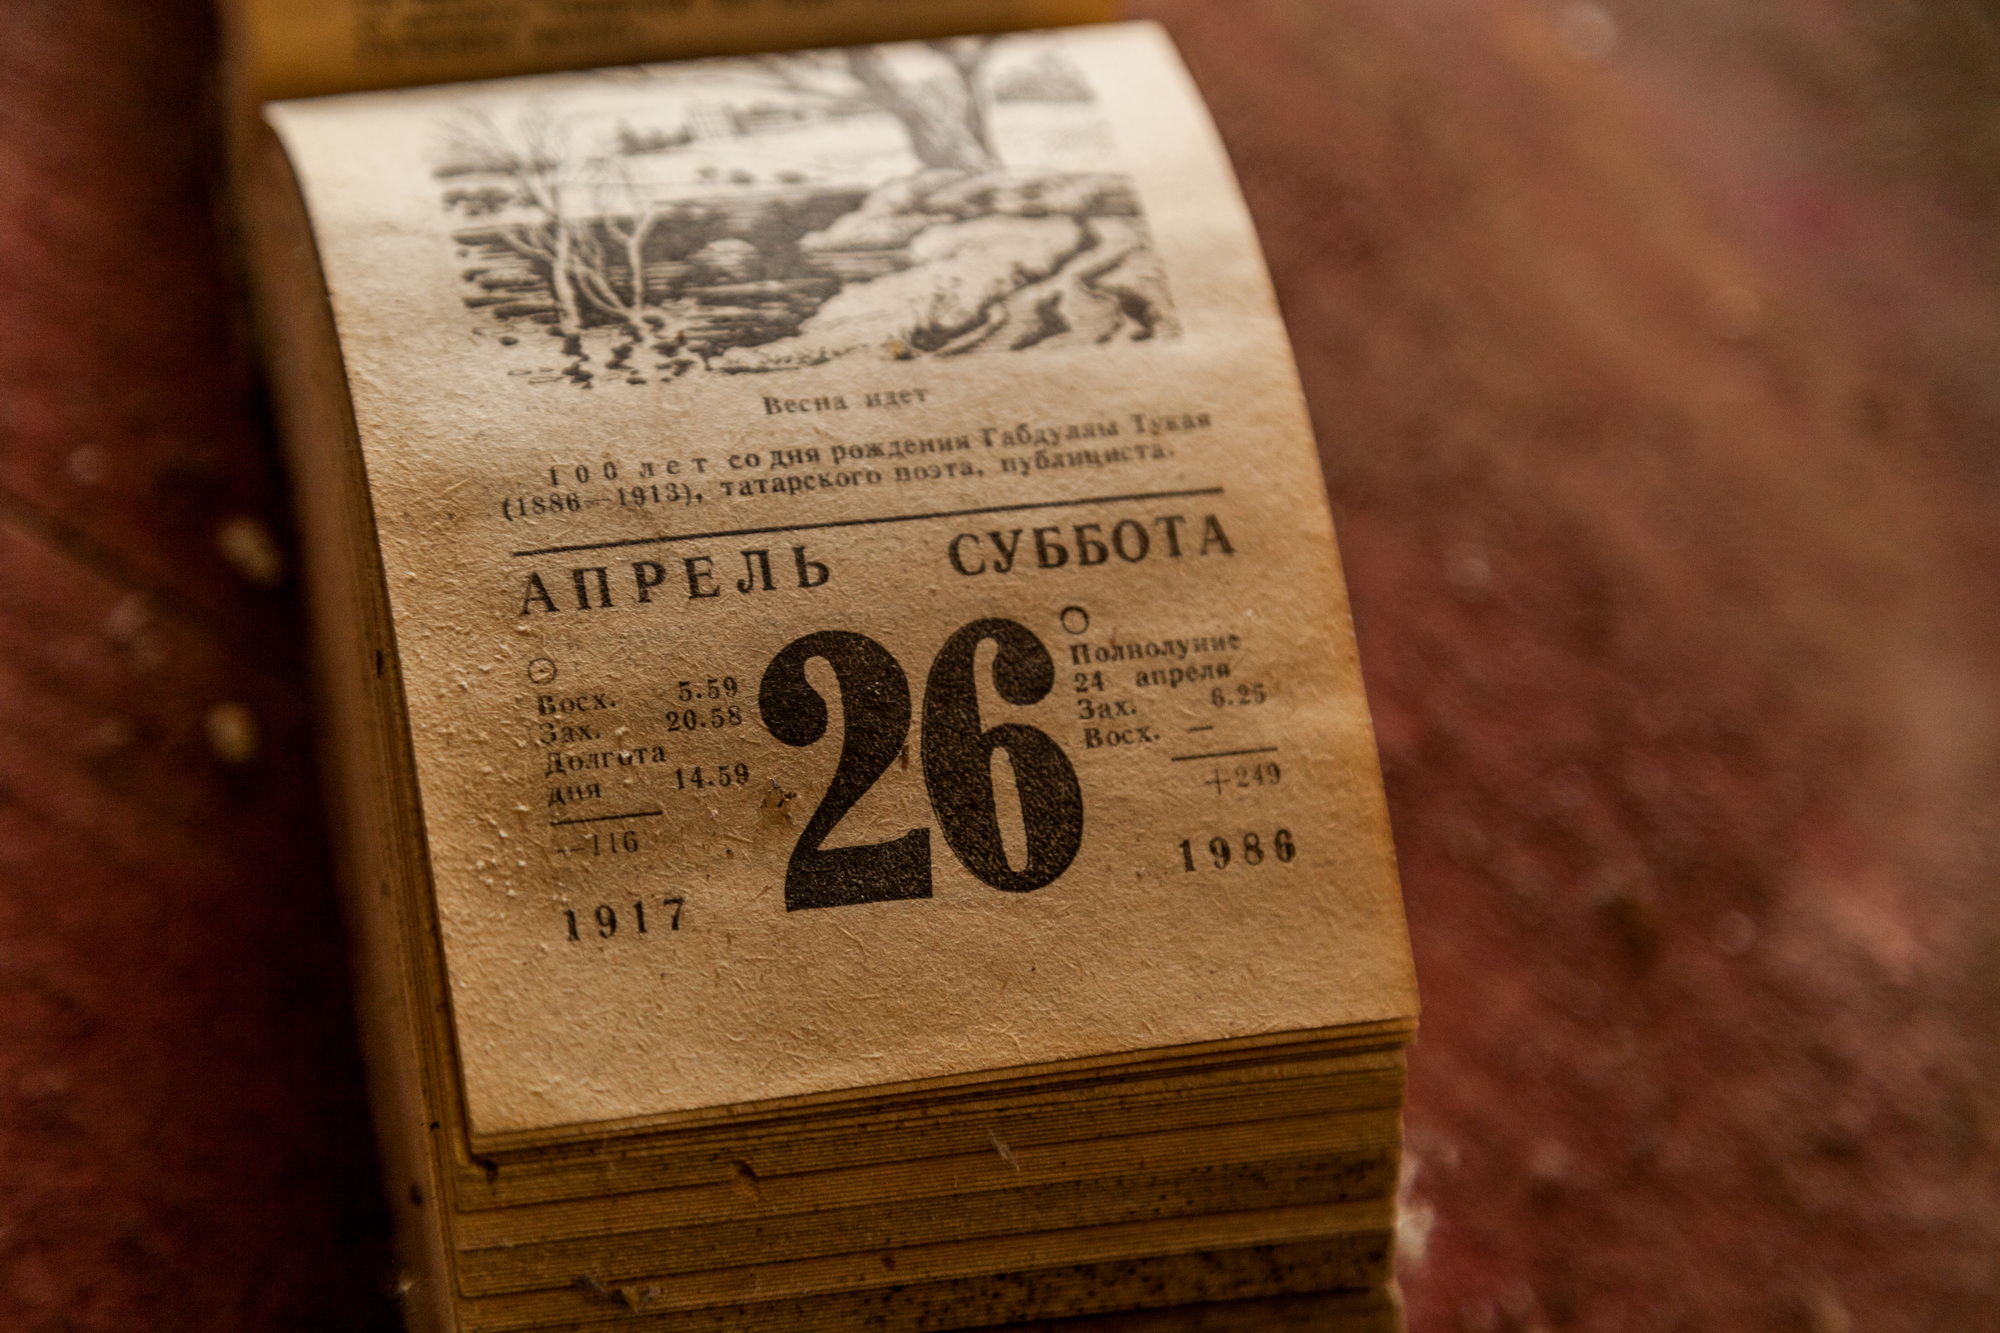 Весна идет
100 лет со дня рождения Габдуллы Тукая
(1886—1913), татарского поэта, публициста.
АПРЕЛЬ СУББОТА
26
Восх. 5.59
Зах. 20.58
Долгота
дня 14.59
—116
1917
Полнолуние
24 апреля
Зах. 6.25
Восх. —
+249
1986